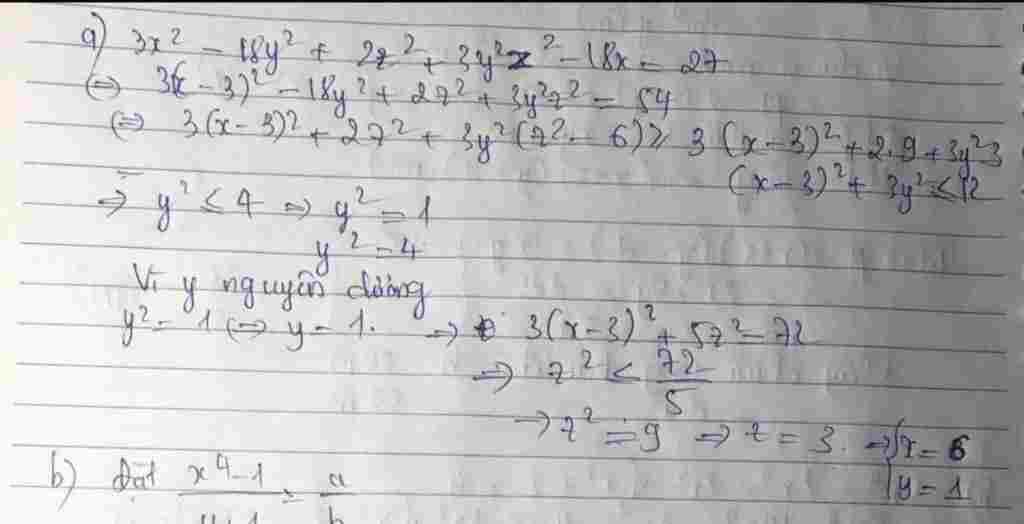 a) 3x² - 18y² + 2z² + 3y²z² - 18x = 27
(⇒) 3(x - 3)² - 18y² + 2z² + 3y²z² = 54
(⇒) 3(x-3)² + 2z² + 3y²(z² - 6) ≥ 3(x-3)² + 2.9 + 3y²3
(x-3)² + 3y² ≤ 12
⇒ y² ≤ 4 ⇒ y² = 1
y² = 4
Vì y nguyên dương
y² = 1 (⇒) y = 1. → 3(x-3)² + 5z² = 72
⇒ z² ≤ 72/5
→ z² = 9 ⇒ z = 3. ⇒ { x = 6
y = 1
b) Đặt x⁴-1 / y+1 = a/b